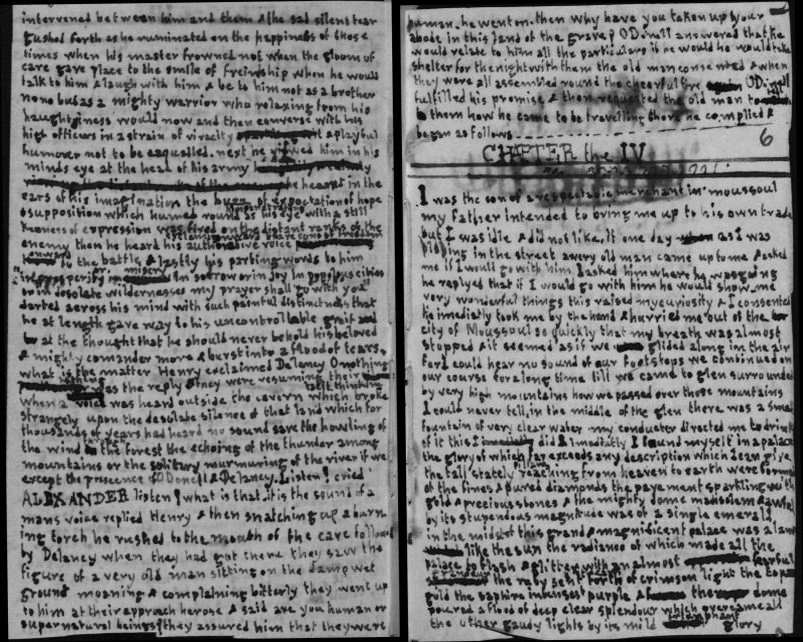 intervened between him and them & the sad silent tear
gushed forth as he ruminated on the happiness of those
times when his master frowned not when the gloom of
care gave place to the smile of freindship when he would
talk to him & laugh with him & be to him not as a brother
no no but as a mighty warrior who relaxing from his
haughtiness would now and then converse with his
high officers in a strain of vivacity & playful
humour not to be equalled. next he viewed him in his
minds eye at the head of his army
he heard in the
ears of his imagination the buzz of expectation of hope
& supposition which hummed round as his eye with a still
keeness of expression was fixed on the distant ranks of the
enemy then he heard his authorative voice
onward to the battle & lastly his parting words to him
in prosperity or misery in sorrow or in joy in populous cities
or in desolate wildernesses my prayer shall go with you
darted across his mind with such painful distinctness that
he at length gave way to his uncontrollable grief and
at the thought that he should never behold his beloved
& mighty comander more & burst into a flood of tears.
what is the matter Henry exclaimed Delaney O nothing
nothing was the reply & they were resuming their
when a voice was heard outside the cavern which broke
strangely upon the desolate silence of that land which for
thousands of years had heard no sound save the howling of
the wind the forest the echoing of the thunder among
mountains or the solitary murmuring of the river if we
except the prescence of O Donell & Delaney. Listen! cried
ALEXANDER listen! what is that, it is the sound of a
mans voice replied Henry & then snatching up a burn
ing torch he rushed to the mouth of the cave followed
by Delaney when they had got there they saw the
figure of a very old man sitting on the damp wet
ground moaning & complaining bitterly they went up
to him at their approach he rose & said are you human or
supernatural beings? they assured him that they were
human. he went on. then why have you taken up your
abode in this land of the grave? O Donell answered that he
would relate to him all the particulars if he would take
shelter for the night with them the old man consented & when
they were all assembled round the cheerful fire O Donell
fulfilled his promise & then requested the old man to
to them how he came to be travelling there he complied &
began as follows
6
CHAPTER the IV
I was the son of a respectable merchant in moussoul
my father intended to bring me up to his own trade
but I was idle & did not like it one day as I was
playing in the street a very old man came up to me & asked
me if I would go with him I asked him where he was going
he replyed that if I would go with him he would show me
very wonderful things this raised my curiosity & I consented
he imediatly took me by the hand & hurried me out of the
city of Moussoul so quickly that my breath was almost
stopped & it seemed as if we glided along in the air
for I could hear no sound of our footsteps we continued on
our course for a long time till we came to glen surrounded
by very high mountains how we passed over those mountains
I could never tell, in the middle of the glen there was a small
fountain of very clear water my conducter directed me to drink
of it this I did & imediatly I found myself in a palace
the glory of which far exceeds any description which I can give
the tall stately pillars reaching from heaven to earth were formed
of the finest & purest diamonds the pavement sparkling with
gold & precious stones & the mighty dome made solemn & awful
by its stupendous magnitude was of a single emerald
in the midst of this grand & magnificent palace was a lamp
like the sun the radiance of which made all the
palace to flash & glitter with an almost fearful
grandeur the ruby sent forth of crimson light the topaz
gold the saphire intensest purple & the dome
poured a flood of deep clear splendour which overcame all
the other gaudy lights by its mild triumphant glory